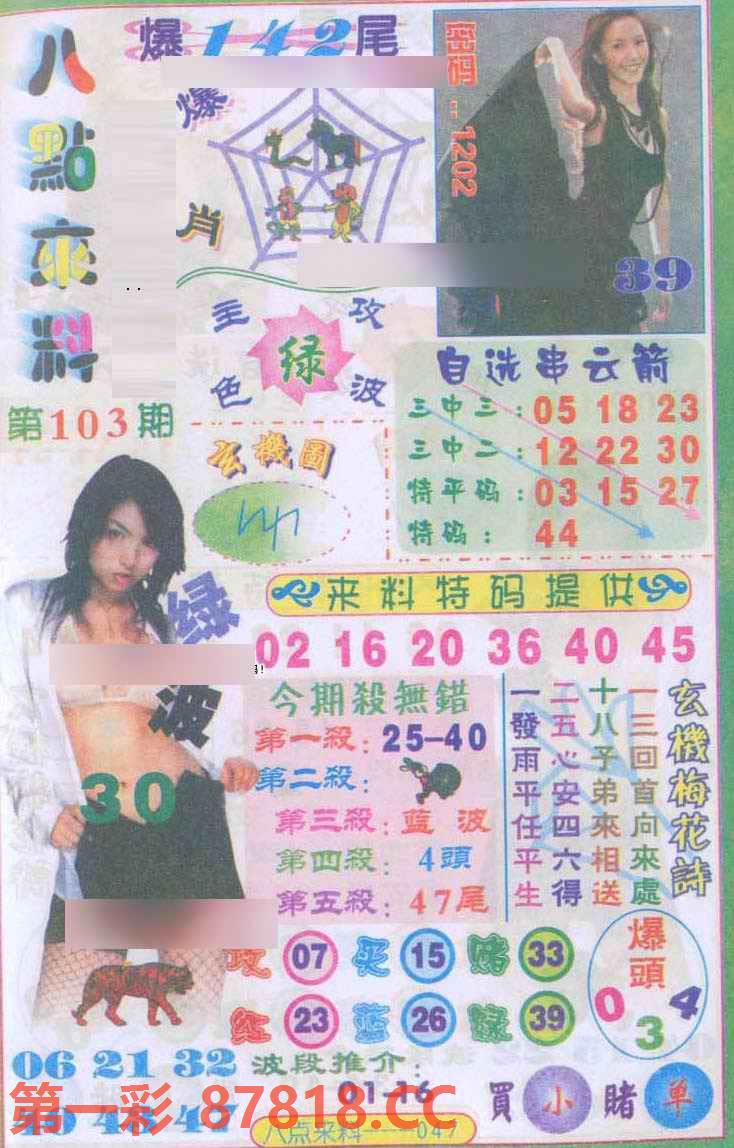 八點來料
爆142尾
爆肖
密码：1202
39
主攻
绿
色波
第103期
玄機圖
自选串云箭
三中三：05 18 23
三中二：12 22 30
特平码：03 15 27
特码：44
来料特码提供
02 16 20 36 40 45
绿波
30
今期殺無錯
第一殺：25-40
第二殺：
第三殺：蓝波
第四殺：4頭
第五殺：47尾
玄機梅花詩
一三回首向來處
十八子弟來相送
二五心安四六得
一發雨平任平生
07 买 15 赌 33
红 23 蓝 26 绿 39
爆頭
0 3 4
06 21 32
波段推介：
01-16
買小賭单
第一彩 87818.CC
八点来料----047